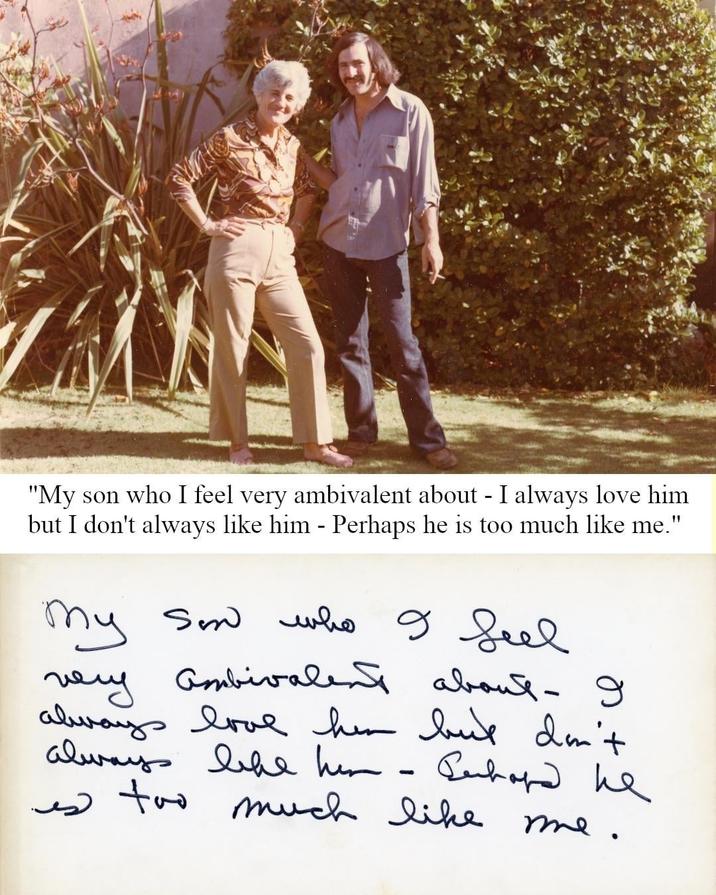 "My son who I feel very ambivalent about - I always love him
but I don't always like him - Perhaps he is too much like me."
My son who I feel
very ambivalent about - I
always love him but don't
always like him - Perhaps he
is too much like me.